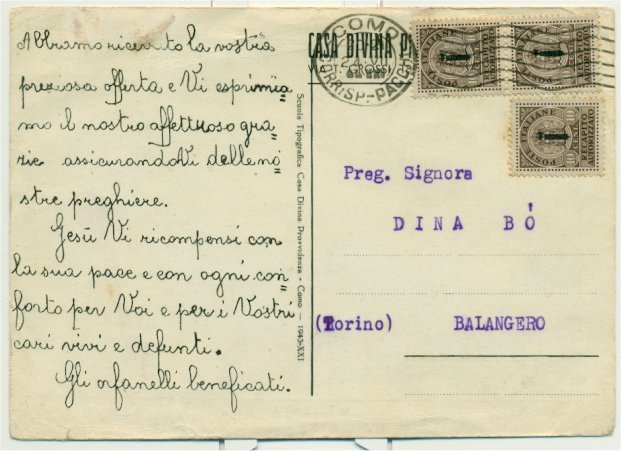 Abbiamo ricevuto la vostra
preziosa offerta e Vi esprimia„
mo il nostro affettuoso gra„
zie assicurandoVi delle no„
stre preghiere.
Gesù Vi ricompensi con
la sua pace e con ogni con„
forto per Voi e per i Vostri
cari vivi e defunti.
Gli orfanelli beneficati.
Scuola Tipografica Casa Divina Provvidenza - Como - 1943-XXI
CASA DIVINA P
COMO
CORRISP.-PACCHI
POSTE ITALIANE
RECAPITO AUTORIZZATO
POSTE ITALIANE
RECAPITO AUTORIZZATO
POSTE ITALIANE
RECAPITO AUTORIZZATO
Preg. Signora
DINA BÒ
(Torino) BALANGERO